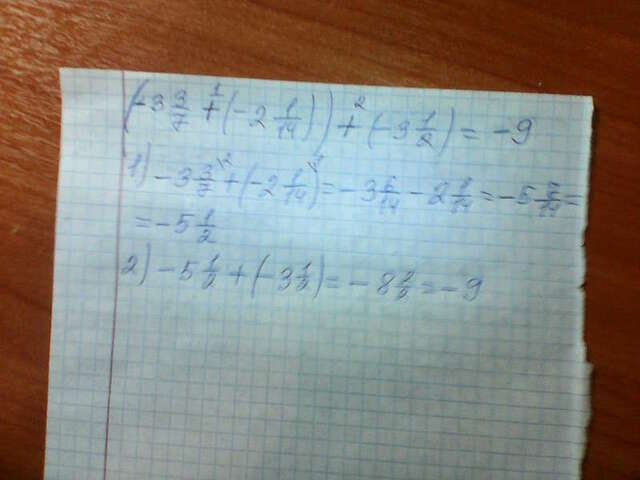 (-3 3/7 +¹ (-2 1/14)) +² (-3 1/2) = -9
1) -3 3/7 \2 + (-2 1/14) \1 = -3 6/14 - 2 1/14 = -5 7/14 =
= -5 1/2
2) -5 1/2 + (-3 1/2) = -8 2/2 = -9